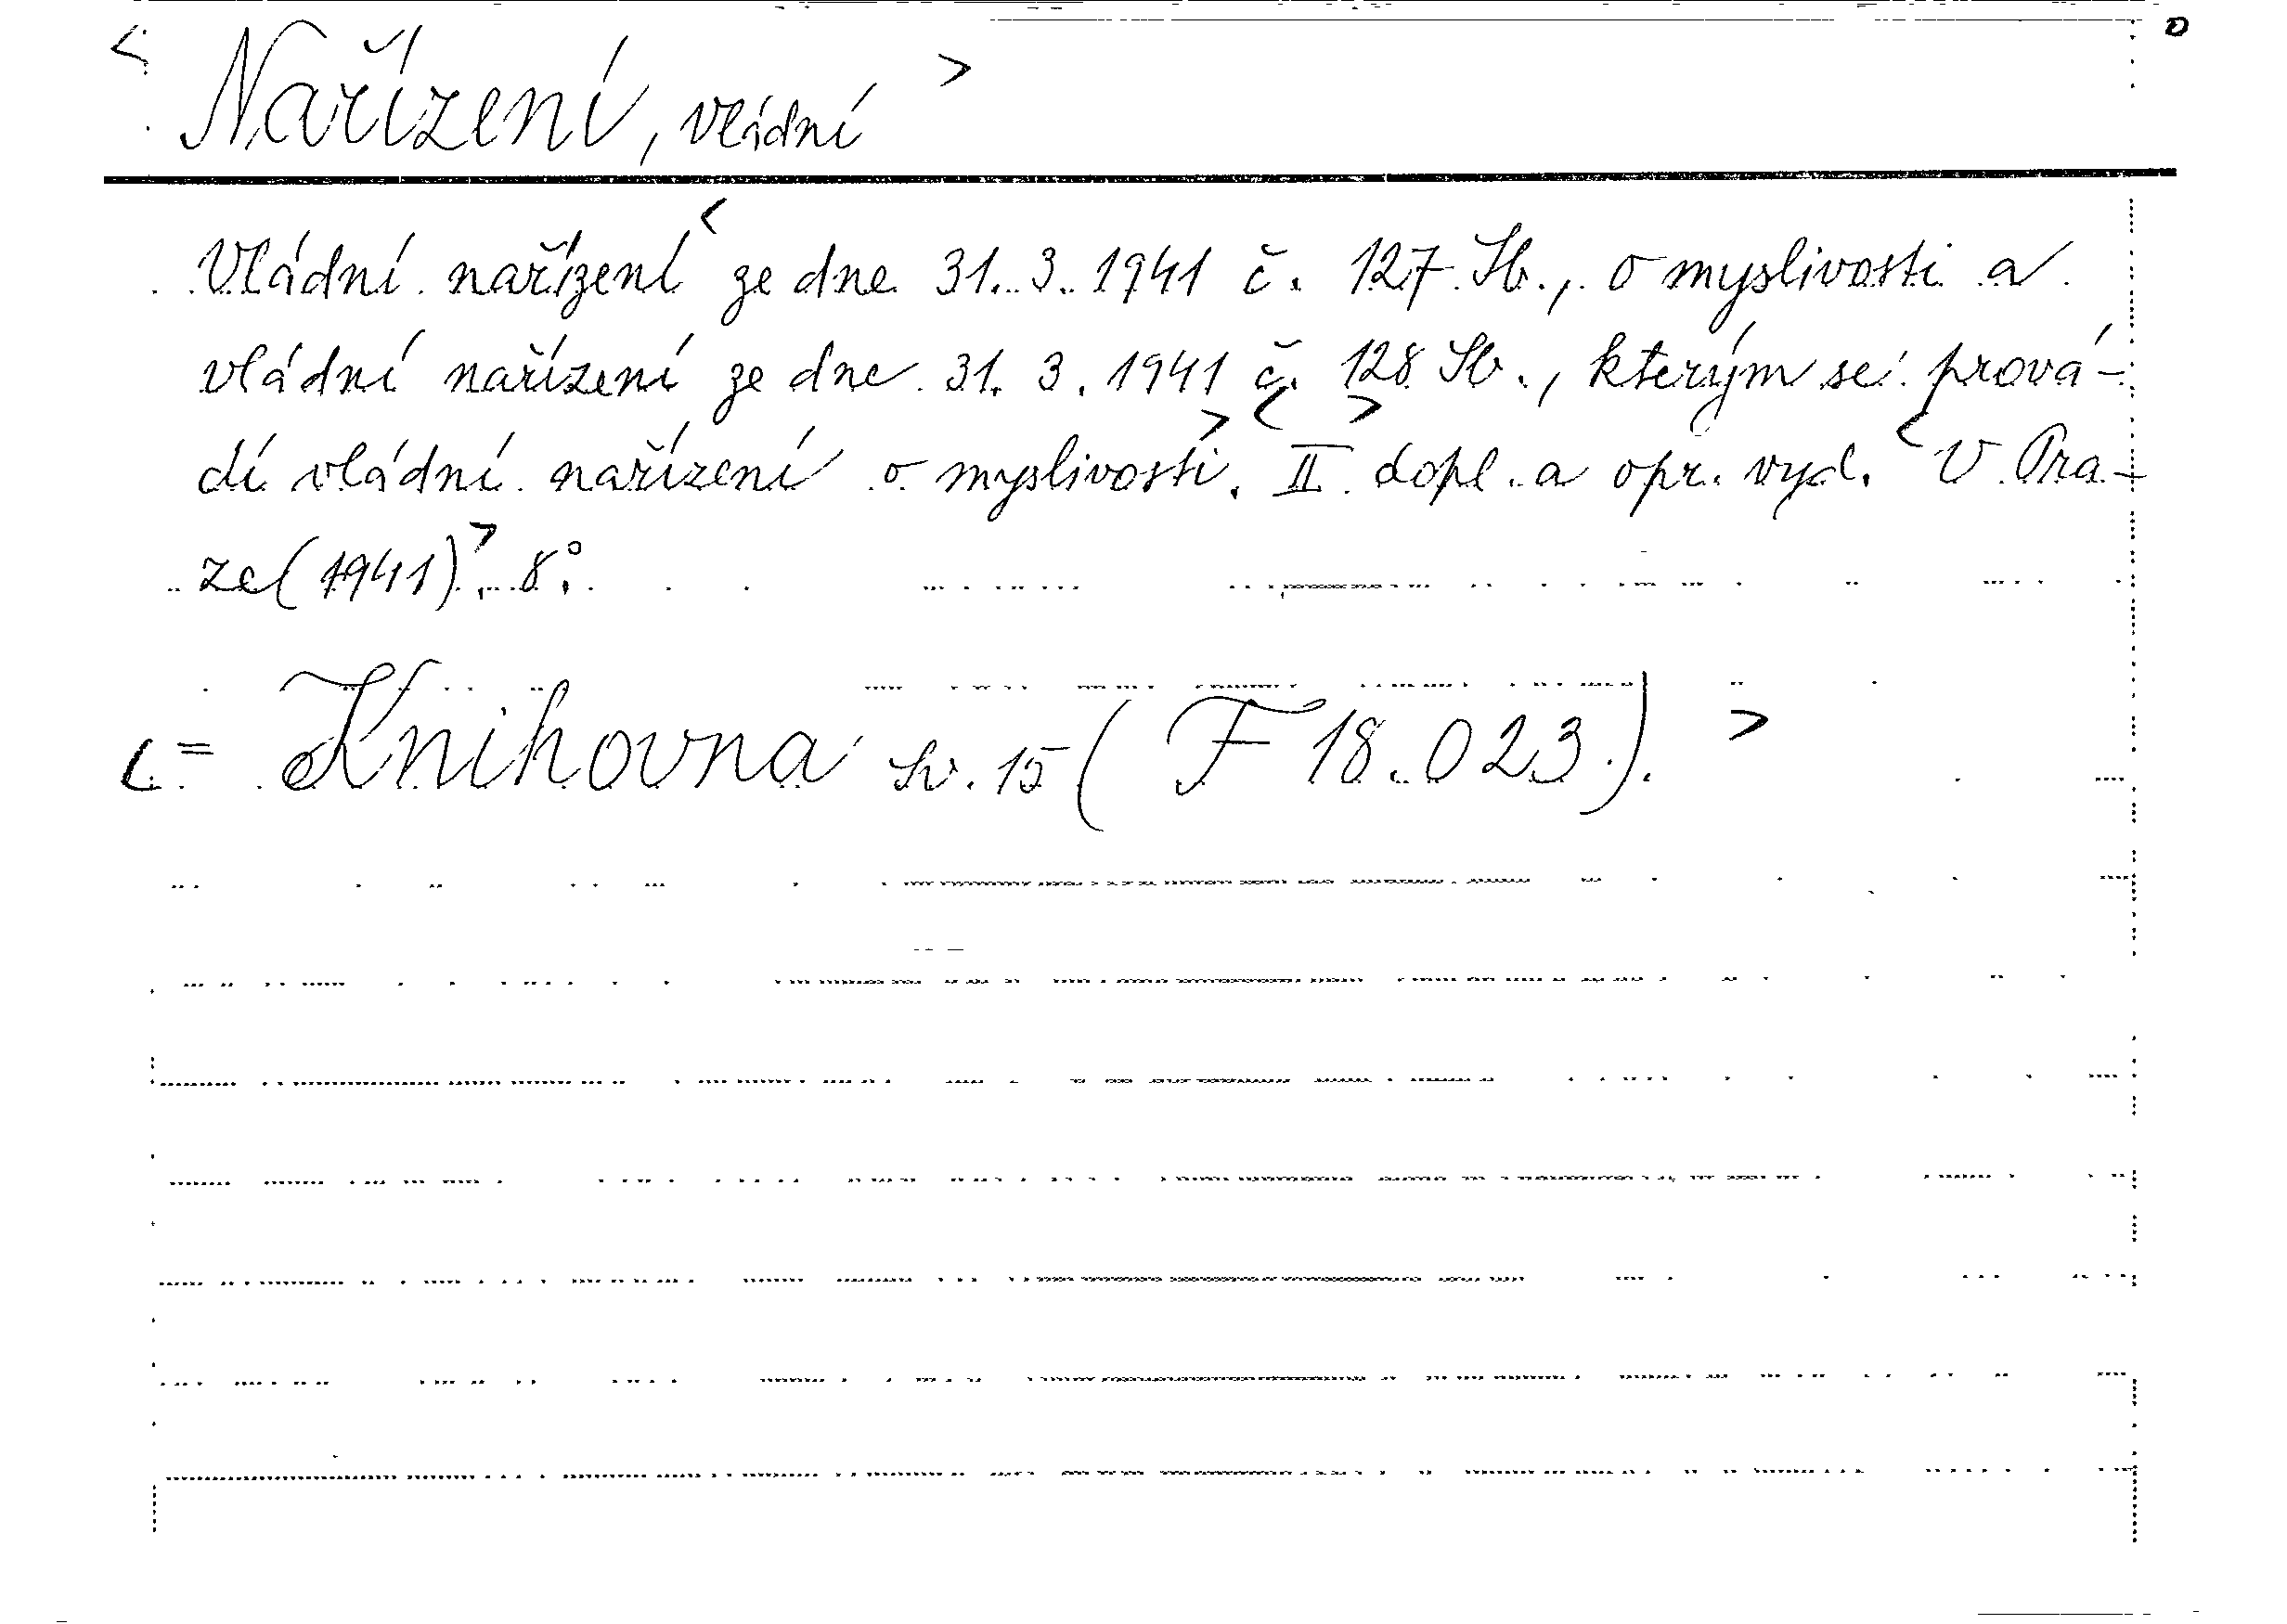 < Nařízení, vládní >
Vládní nařízení < ze dne 31. 3. 1941 č. 127 Sb., o myslivosti a
vládní nařízení ze dne 31. 3. 1941 č. 128 Sb., kterým se prová-
dí vládní nařízení o myslivosti. > < II > dopl. a opr. vyd. < V Pra-
ze (1941) >, 8°.
< = Knihovna sv. 15 ( F 18.023.). >